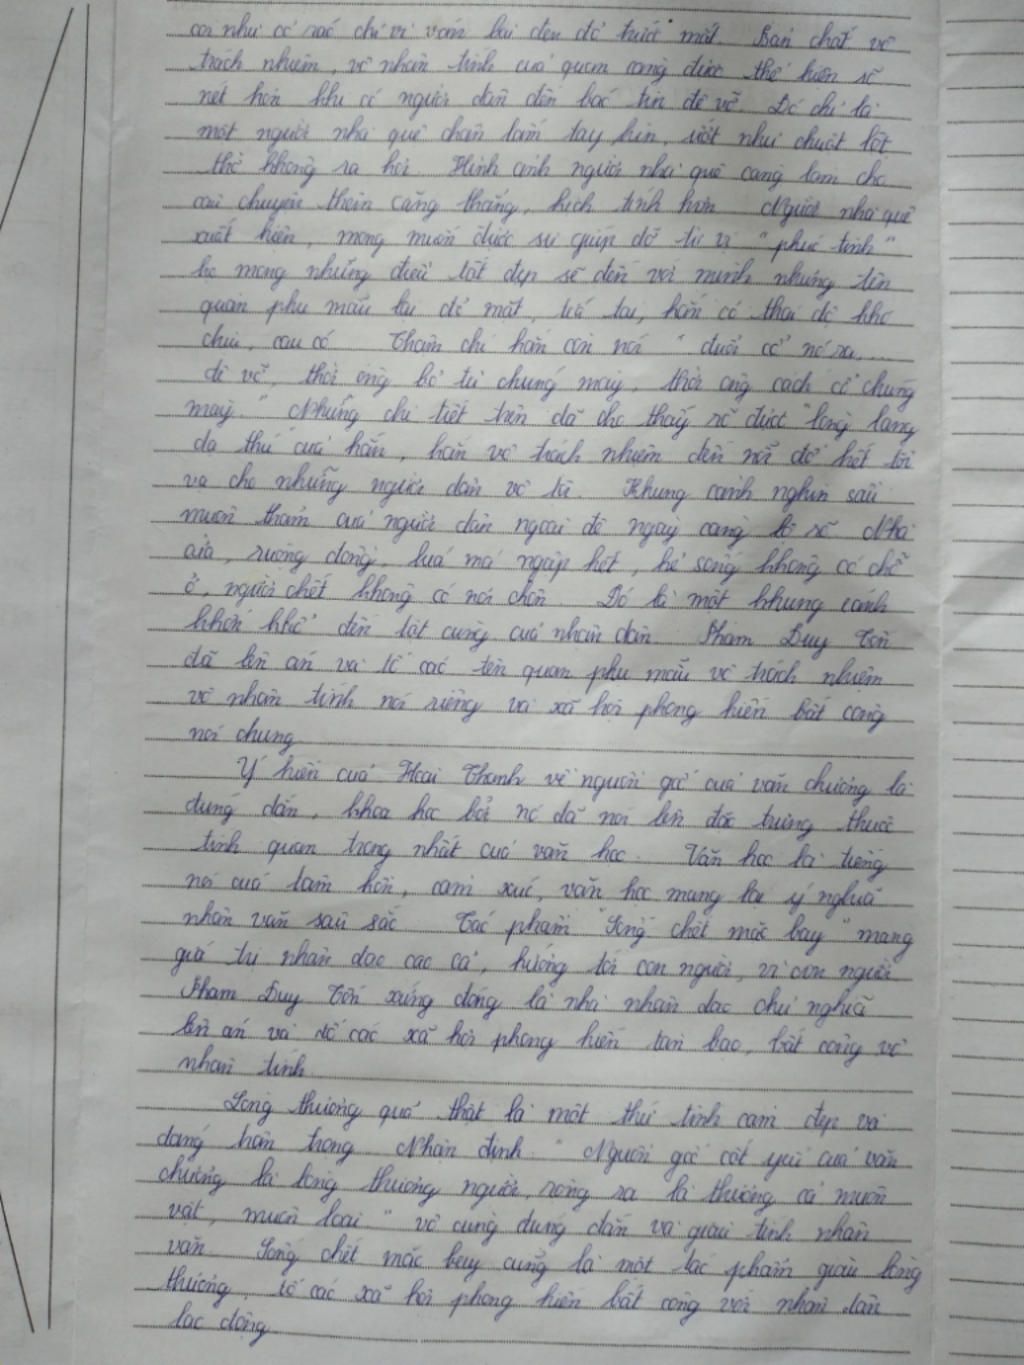 coi như có sấc chỉ vì ván bài đen đỏ trước mắt. Bản chất vô
trách nhiệm, vô nhân tính của quan càng được thể hiện rõ
nét hơn khi có người dân đến báo tin đê vỡ. Đó chỉ là
một người nhà quê chân lấm tay bùn, ướt như chuột lột
thở không ra hơi. Hình ảnh người nhà quê càng làm cho
câu chuyện thêm căng thẳng, kịch tính hơn. Người nhà quê
xuất hiện, mong muốn được sự giúp đỡ từ vị "phúc tinh"
họ mong những điều tốt đẹp sẽ đến với mình nhưng tên
quan phụ mẫu lại đỏ mặt, tía tai, hắn có thái độ khó
chịu, cau có. Thậm chí hắn còn nói "đuổi cổ nó ra,...
đê vỡ, thời ông bỏ tù chúng mày, thời ông cách cổ chúng
mày." Những chi tiết trên đã cho thấy rõ được "lòng lang
dạ thú của hắn, hắn vô trách nhiệm đến nỗi đổ hết tội
vạ cho những người dân vô tội. Khung cảnh nghìn sầu
muôn thảm của người dân ngoài đê ngày càng lộ rõ. Nhà
cửa, ruộng đồng, lúa má ngập hết, kẻ sống không có chỗ
ở, người chết không có nơi chôn. Đó là một khung cảnh
khốn khổ đến tột cùng của nhân dân. Phạm Duy Tốn
đã lên án và tố cáo tên quan phụ mẫu vô trách nhiệm
vô nhân tính nói riêng và xã hội phong kiến bất công
nói chung
Ý kiến của Hoài Thanh về nguồn gốc của văn chương là
đúng đắn, khoa học bởi nó đã nói lên đặc trưng thuộc
tính quan trọng nhất của văn học. Văn học là tiếng
nói của tâm hồn, cảm xúc, văn học mang lại ý nghĩa
nhân văn sâu sắc. Tác phẩm "Sống chết mặc bay" mang
giá trị nhân đạo cao cả, hướng tới con người, vì con người
Phạm Duy Tốn xứng đáng là nhà nhân đạo chủ nghĩa
lên án và tố cáo xã hội phong kiến tàn bạo, bất công vô
nhân tính.
Lòng thương quả thật là một thứ tình cảm đẹp và
đáng trân trọng. Nhận định "Nguồn gốc cốt yếu của văn
chương là lòng thương người, rộng ra là thương cả muôn
vật, muôn loài." vô cùng đúng đắn và giàu tính nhân
văn. Sống chết mặc bay cũng là một tác phẩm giàu lòng
thương, tố cáo xã hội phong kiến bất công với nhân dân
lao động.